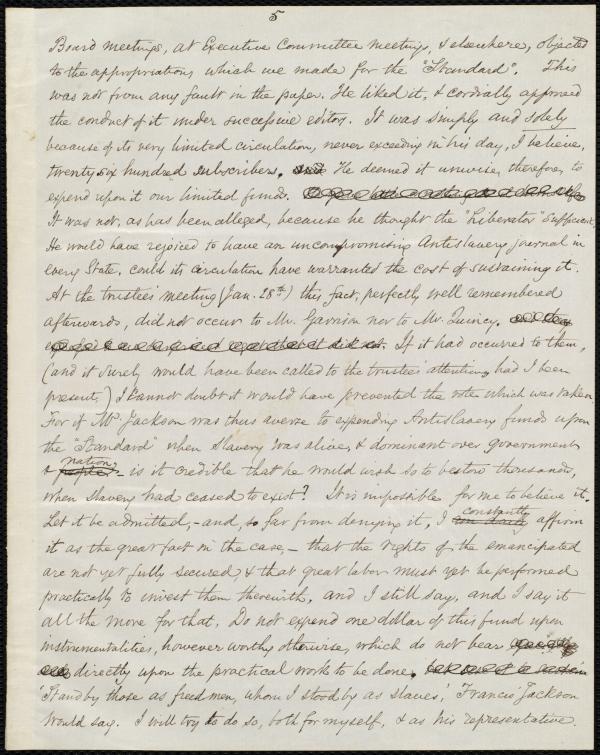 5
Board meetings, at Executive Committee meetings, & elsewhere, objected
to the appropriations which we made for the "Standard". This
was not from any fault in the paper. He liked it, & cordially approved
the conduct of it under successive editors. It was simply and solely
because of its very limited circulation, never exceeding in his day, I believe,
twenty six hundred subscribers. He deemed it unwise, therefore, to
expend upon it our limited funds.
It was not, as has been alleged, because he thought the "Liberator" sufficient.
He would have rejoiced to have an uncompromising Antislavery journal in
every State, could its circulation have warranted the cost of sustaining it.
At the trustees' meeting (Jan. 28th) this fact, perfectly well remembered
afterwards, did not occur to Mr. Garrison nor to Mr. Quincy.
If it had occurred to them,
(and it surely would have been called to the trustees attention, had I been
present,) I cannot doubt it would have prevented the vote which was taken.
For if Mr. Jackson was thus averse to expending Antislavery funds upon
the "Standard" when slavery was alive, & dominant over government
& people nation, - is it credible that he would wish so to bestow thousands,
when slavery had ceased to exist? It is impossible for me to believe it.
Let it be admitted, - and, so far from denying it, I constantly affirm
it as the great fact in the case, - that the rights of the emancipated
are not yet fully secured, & that great labor must yet be performed
practically to invest them therewith, and I still say, and I say it
all the more for that, Do not expend one dollar of this fund upon
instrumentalities, however worthy otherwise, which do not bear
directly upon the practical work to be done.
'Stand by those as freedmen, whom I stood by as slaves,' Francis Jackson
would say. I will try to do so, both for myself, & as his representative.